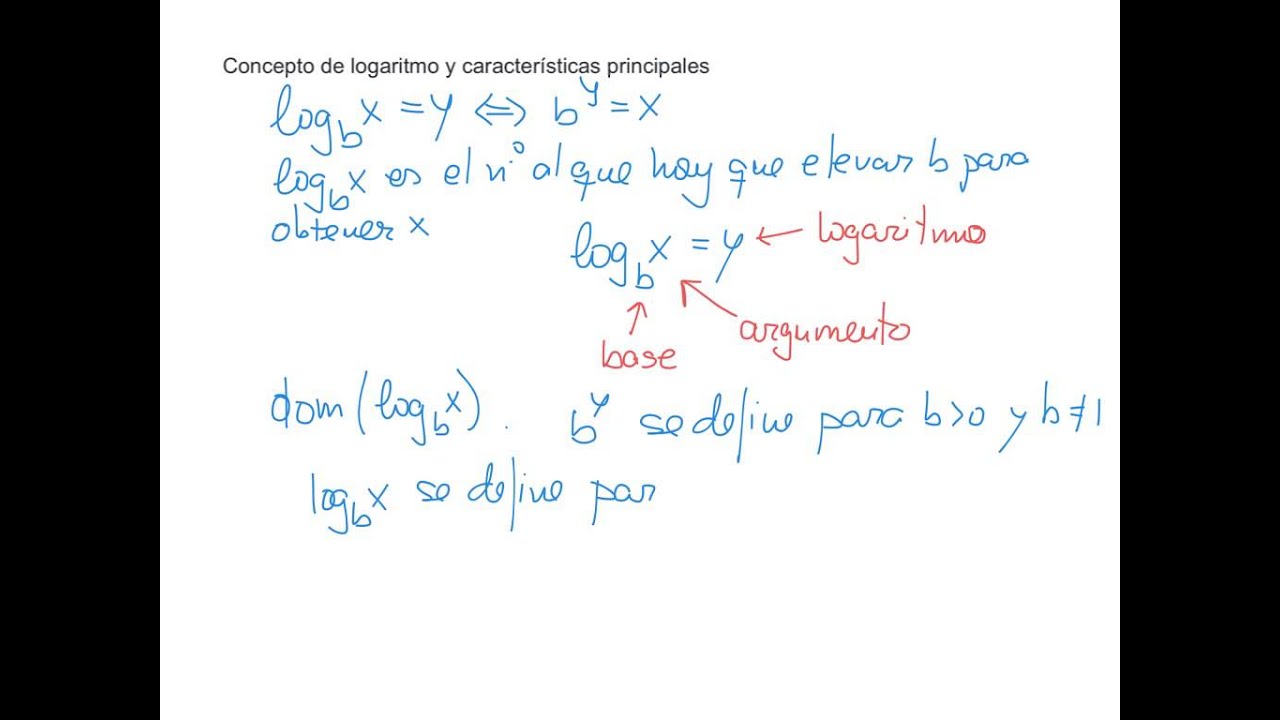 Concepto de logaritmo y características principales
log_b x = y ⇔ b^y = x
log_b x es el n.º al que hay que elevar b para
obtener x
log_b x = y ← logaritmo
base
argumento
dom(log_b x). b^y se define para b>0 y b≠1
log_b x se define par